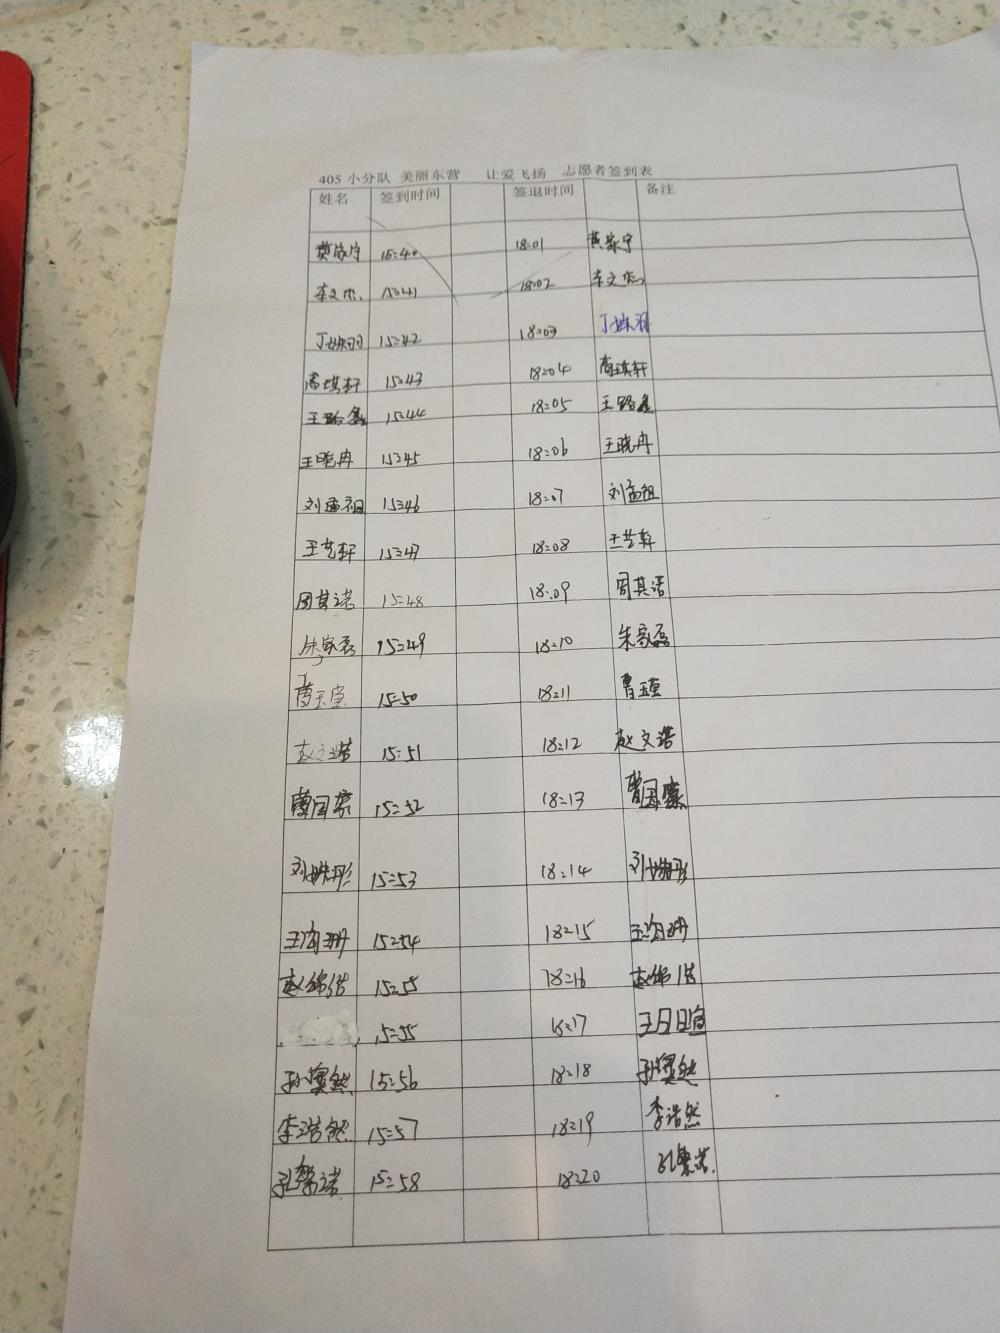 405 小分队 美丽东营 让爱飞扬 志愿者签到表
姓名 签到时间 签退时间 备注
黄家宁 15:40 18:01 黄家宁
李文杰 15:41 18:02 李文杰
丁姝羽 15:42 18:03 丁姝羽
高琪轩 15:43 18:04 高琪轩
王路鑫 15:44 18:05 王路鑫
王晓冉 15:45 18:06 王晓冉
刘孟祖 15:46 18:07 刘孟祖
王艺轩 15:47 18:08 王艺轩
周其诺 15:48 18:09 周其诺
朱家磊 15:49 18:10 朱家磊
曹玉莹 15:50 18:11 曹玉莹
赵文诺 15:51 18:12 赵文诺
15:52 18:13
刘姝彤 15:53 18:14 刘姝彤
15:54 18:15
15:55 18:16
15:55 18:17
孙奥然 15:56 18:18 孙奥然
李浩然 15:57 18:19 李浩然
孔繁诺 15:58 18:20 孔繁诺